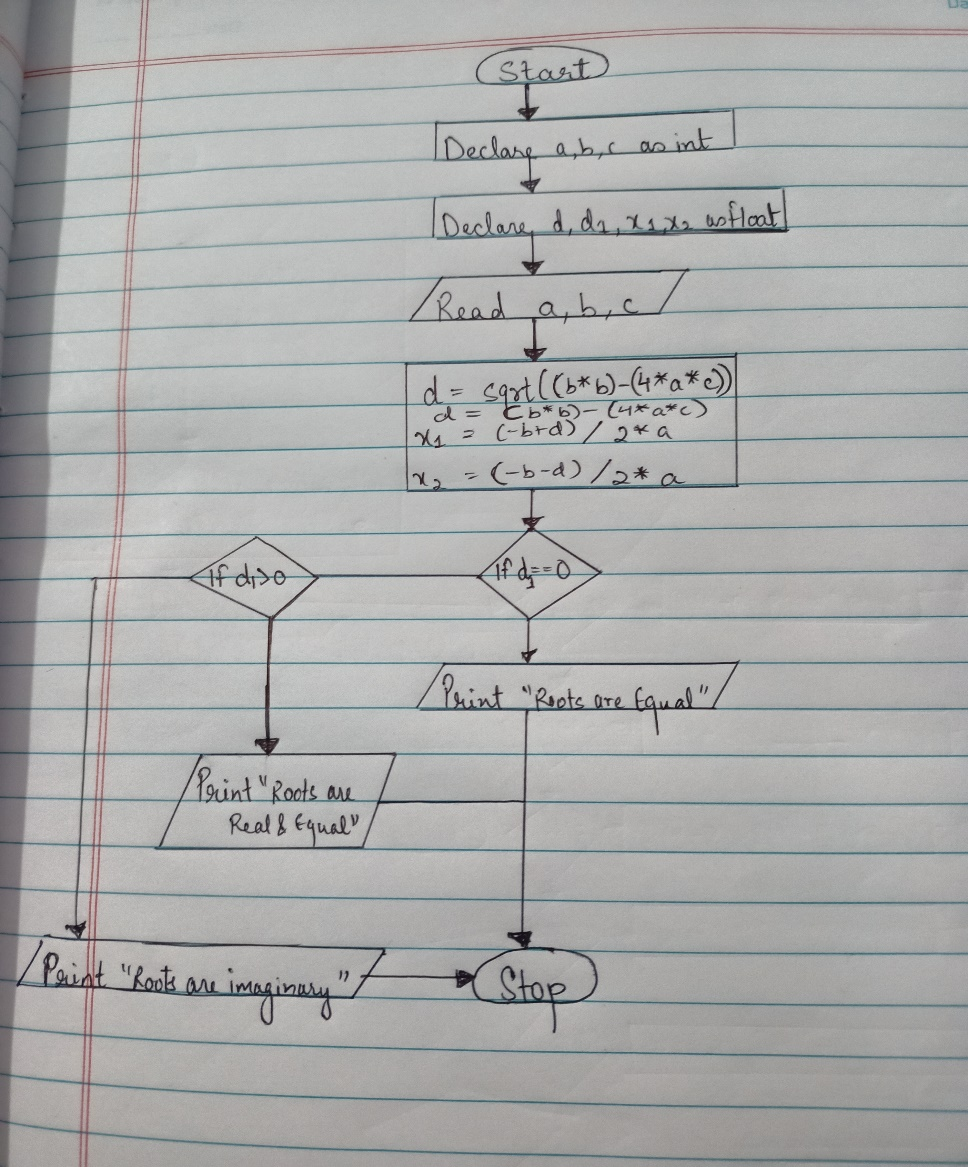 Start
Declare a, b, c as int
Declare d, d1, x1, x2 as float
Read a, b, c
d = sqrt((b*b)-(4*a*c))
d = (b*b)-(4*a*c)
x1 = (-b+d) / 2*a
x2 = (-b-d) / 2*a
If d1>0
If d1==0
Print "Roots are Equal"
Print "Roots are
Real & Equal"
Print "Roots are imaginary"
Stop